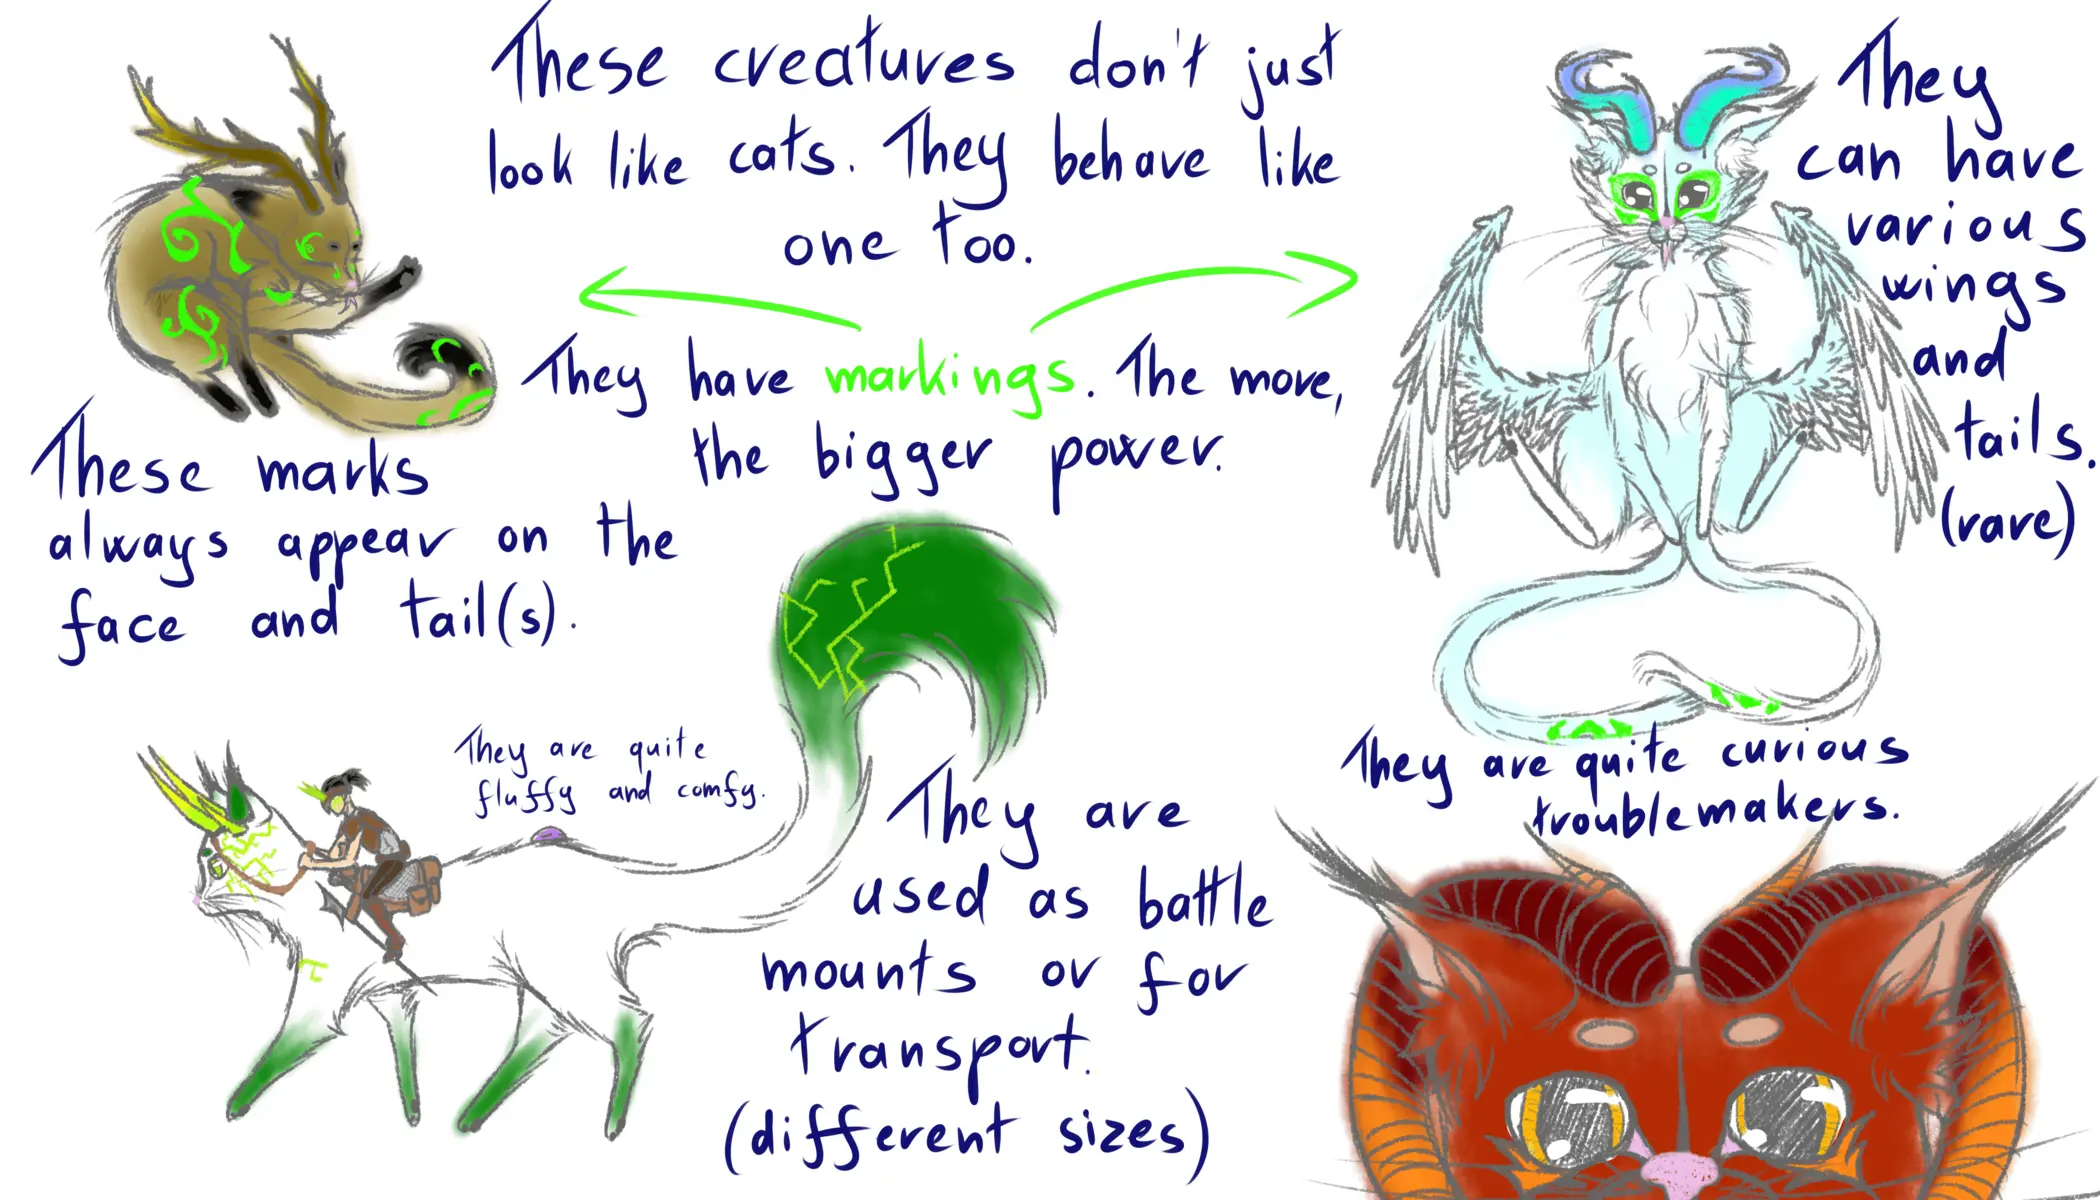 These creatures don't just
look like cats. They behave like
one too.
They have markings. The more,
the bigger power.
These marks
always appear on the
face and tail(s).
They
can have
various
wings
and
tails.
(rare)
They are quite
fluffy and comfy.
They are
used as battle
mounts or for
transport.
(different sizes)
They are quite curious
troublemakers.